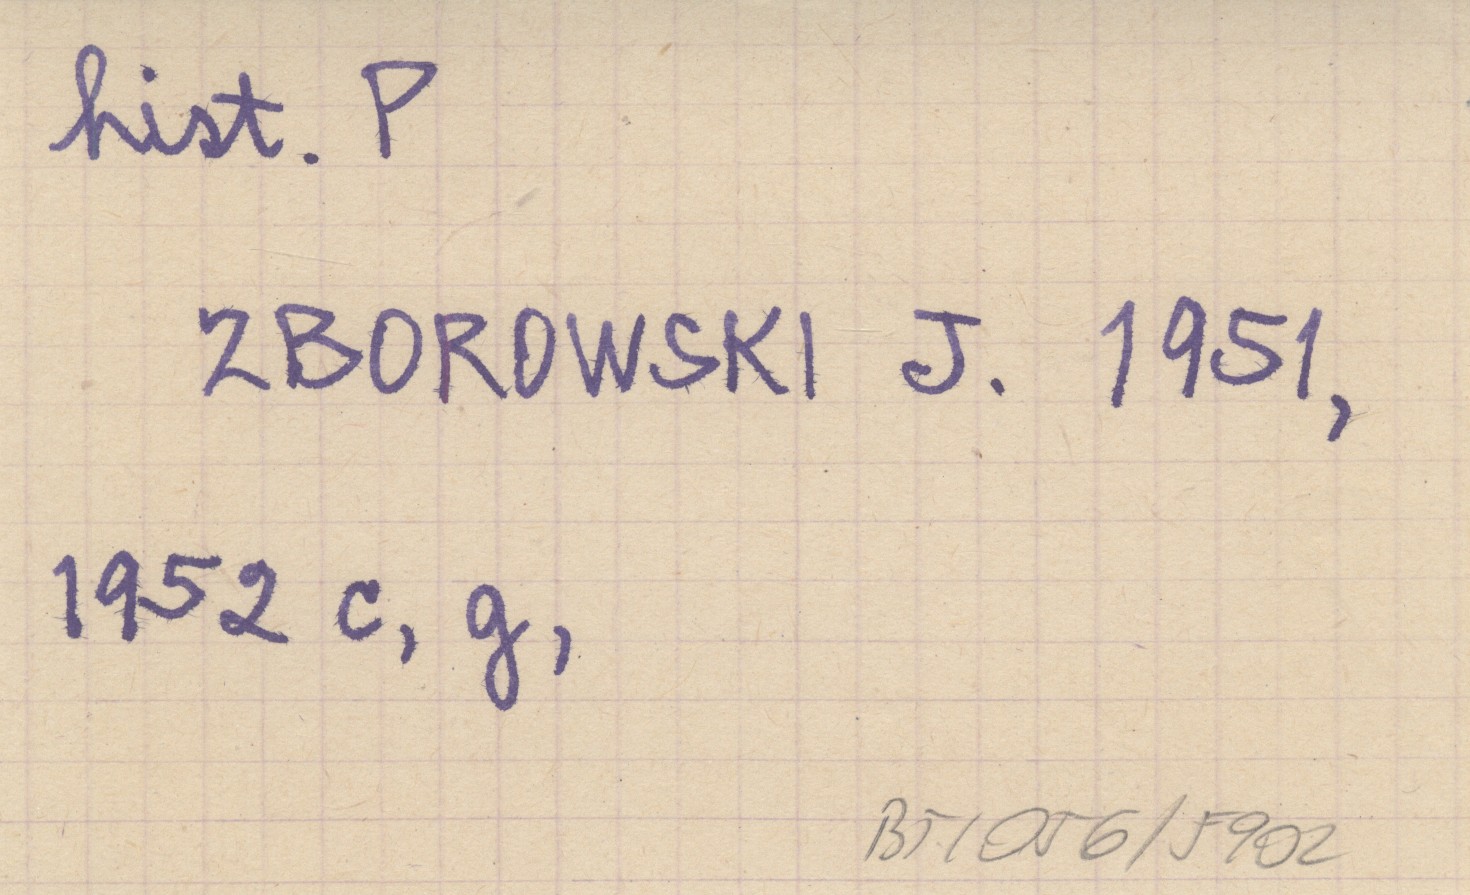 hist. P
ZBOROWSKI J. 1951,
1952 c, g,
BT/OT6/5902